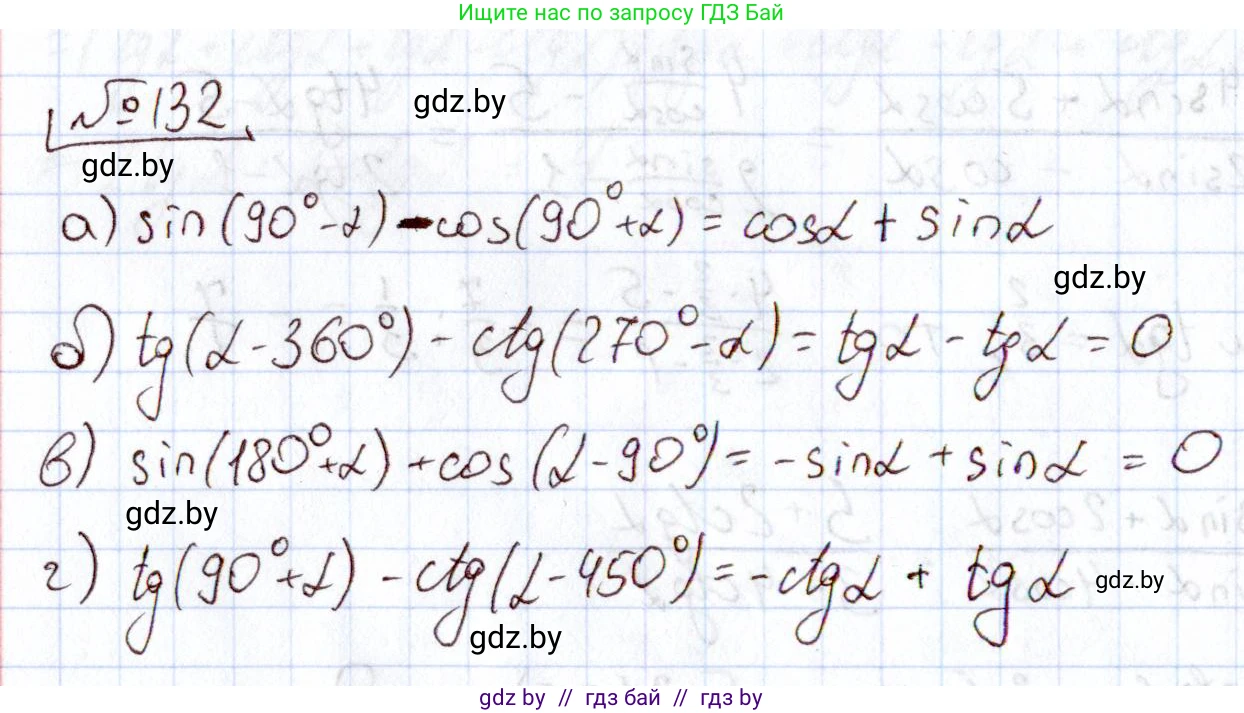 Ищите нас по запросу ГДЗ Бай
№132
gdz.by
gdz.by
а) sin(90° - α) - cos(90° + α) = cosα + sinα
gdz.by
б) tg(α - 360°) - ctg(270° - α) = tgα - tgα = 0
в) sin(180° + α) + cos(α - 90°) = -sinα + sinα = 0
gdz.by
г) tg(90° + α) - ctg(α - 450°) = -ctgα + tgα
gdz.by
gdz.by
gdz by // гдз бай // гдз by